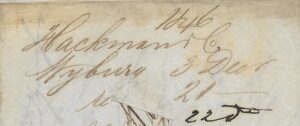 1846
Hackman & C.
Wyburg 3 Decr
re 21 —
22 do